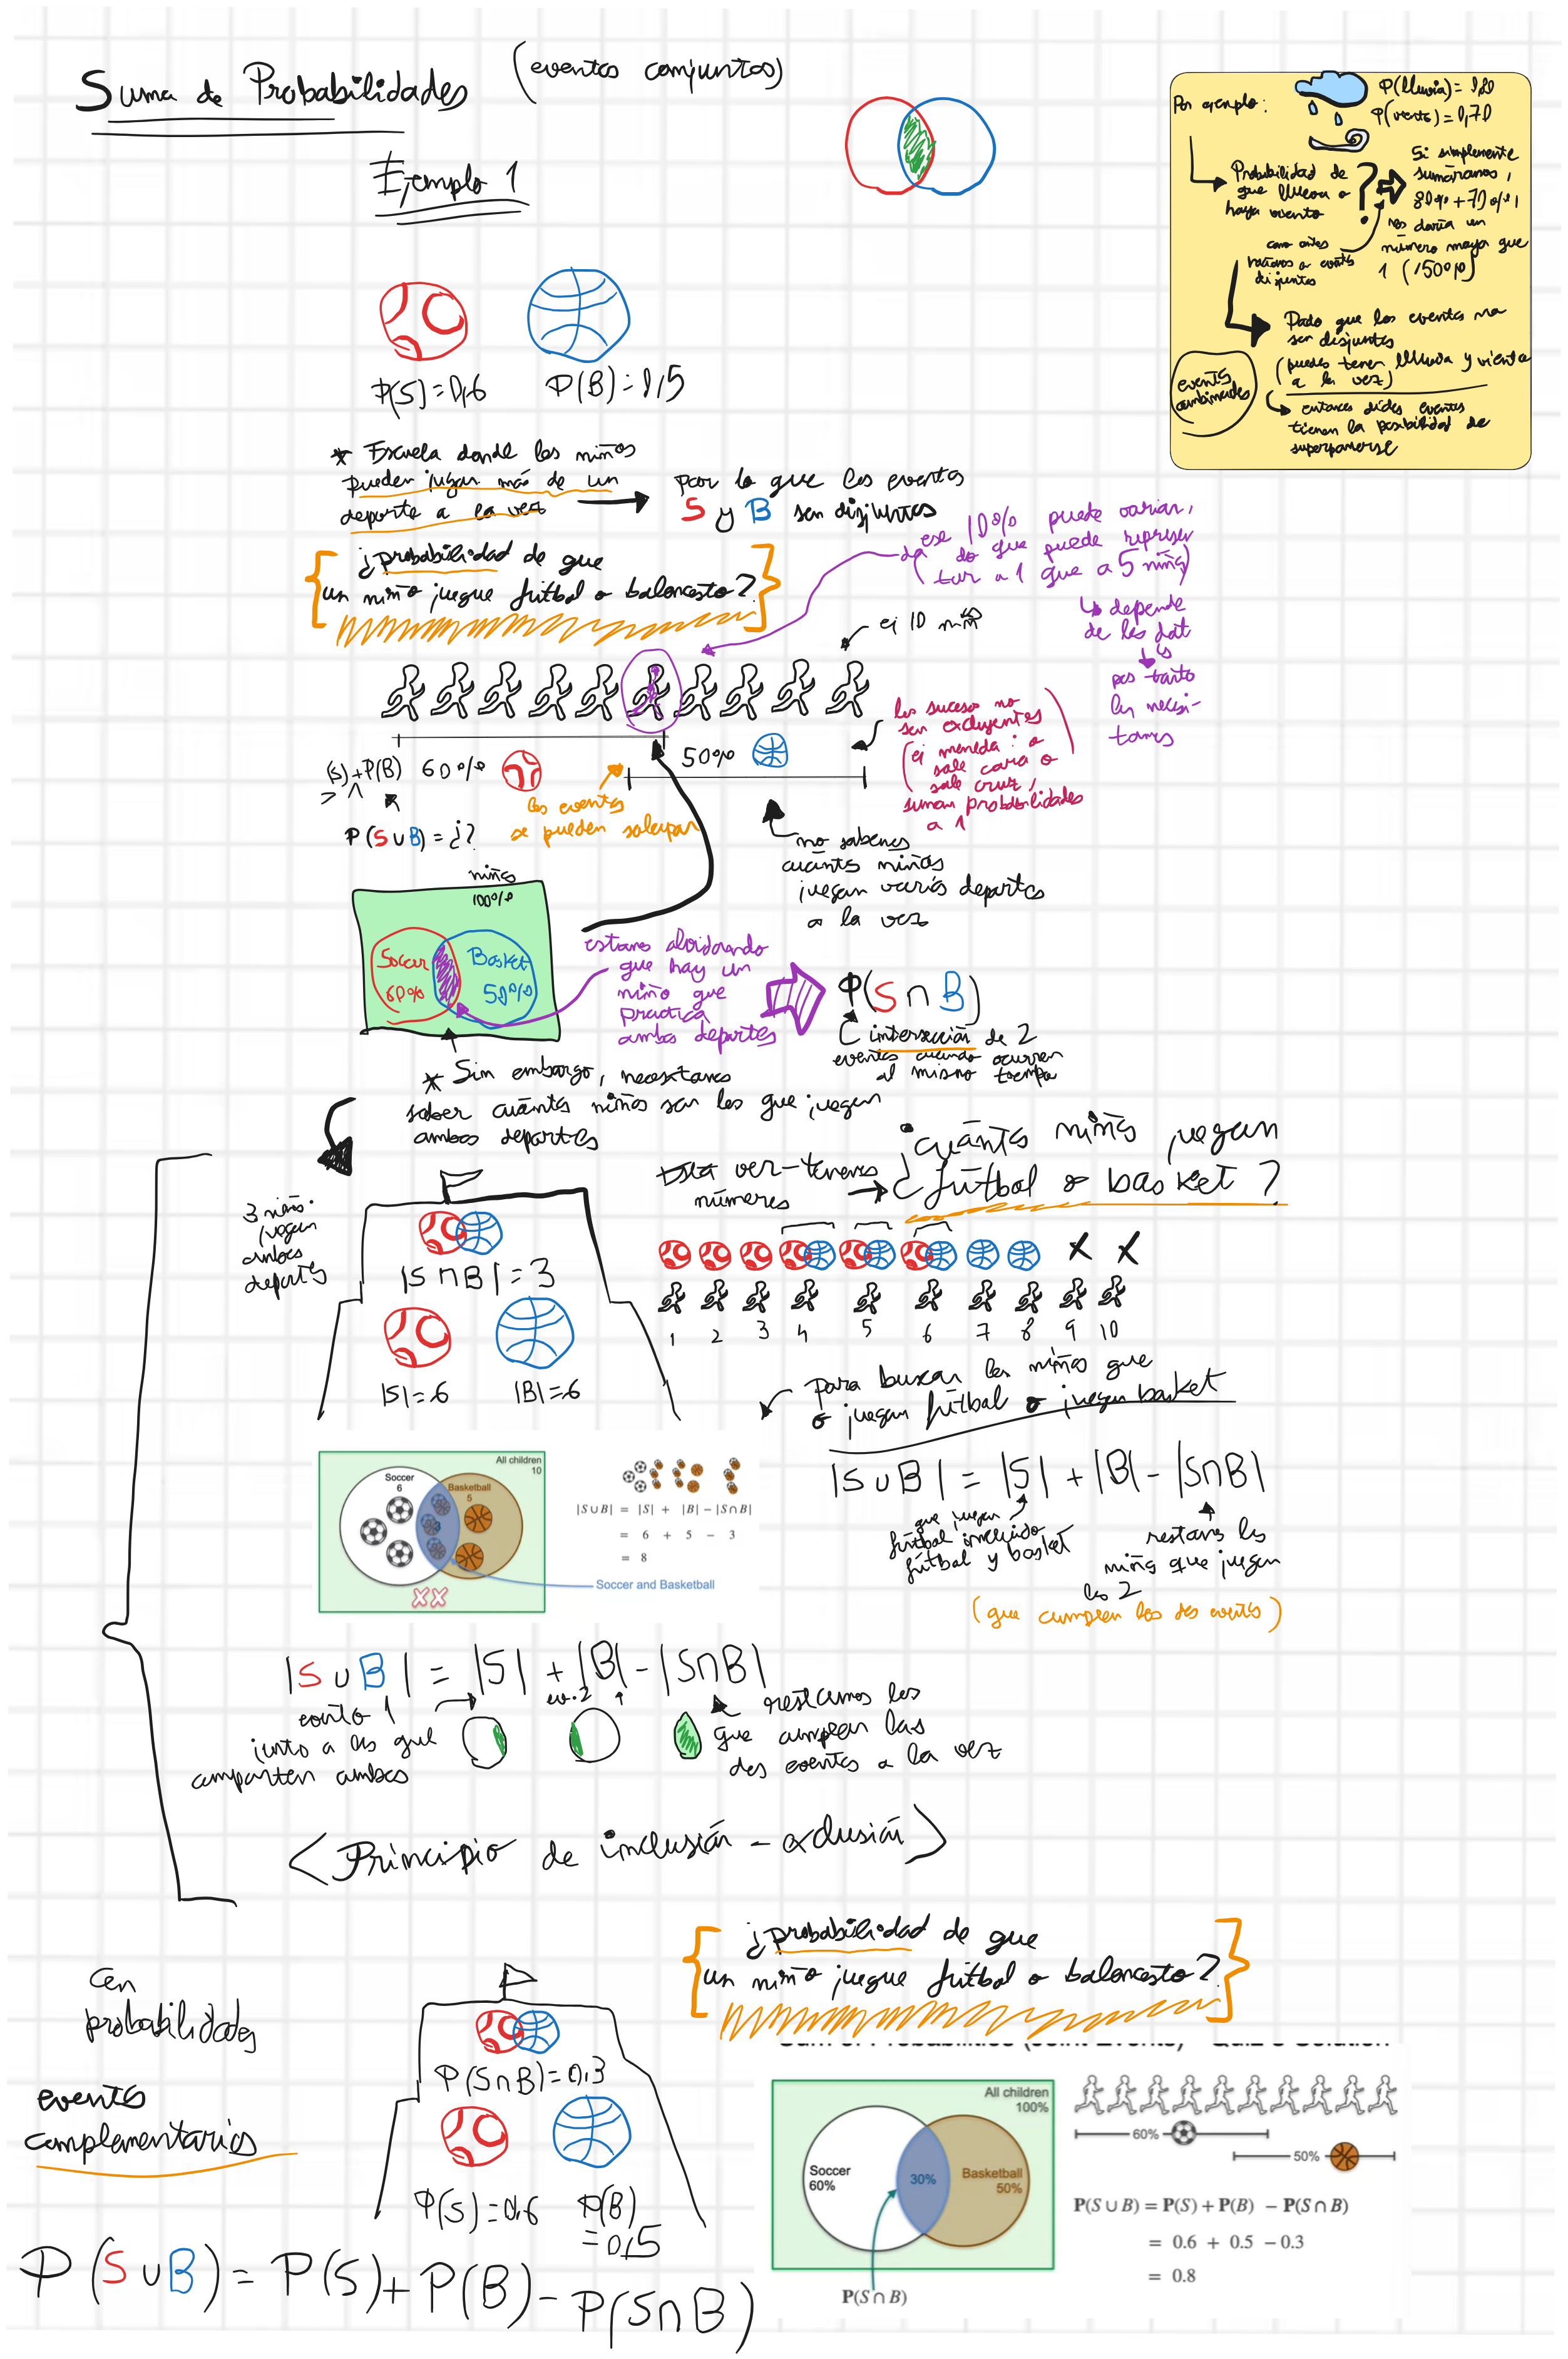 Suma de Probabilidades (eventos conjuntos)
Ejemplo 1
Por ejemplo:
P(lluvia) = 0,80
P(viento) = 0,70
Probabilidad de
que llueva o
haya viento
?
Si simplemente
sumáramos,
80% + 70%,
nos daría un
número mayor que
1 (150%)
como antes
disjuntos
Dado que los eventos no
son disjuntos
(puedes tener lluvia y viento
a la vez)
eventos
combinados
entonces dichos eventos
tienen la posibilidad de
superponerse
P(S) = 0,6 P(B) = 0,5
* Escuela donde los niños
pueden jugar más de un
deporte a la vez
por lo que los eventos
S y B son disjuntos
¿probabilidad de que
un niño juegue fútbol o baloncesto?
ese 10% puede variar,
do que puede represen
tar a 1 que a 5 niños)
depende
de los datos
por tanto
los necesi-
tamos
ej 10 niños
60%
50%
(S) + P(B)
P(S ∪ B) = ¿?
los eventos
se pueden solapar
los sucesos no
son excluyentes
(ej moneda: o
sale cara o
sale cruz,
suman probabilidades
a 1
no sabemos
cuántos niños
juegan varios deportes
a la vez
niños
100%
Soccer
60%
Basket
50%
estamos olvidando
que hay un
niño que
practica
ambos deportes
P(S ∩ B)
intersección de 2
eventos cuando ocurren
al mismo tiempo
* Sin embargo, necesitamos
saber cuántos niños son los que juegan
ambos deportes
3 niños
juegan
ambos
deportes
|S ∩ B| = 3
|S| = 6 |B| = 6
ver - tenemos
números
¿cuántos niños juegan
fútbol o basket?
1 2 3 4 5 6 7 8 9 10
para buscar los niños que
o juegan fútbol o juegan basket
All children
10
Soccer
6
Basketball
5
|S∪B| = |S| + |B| − |S∩B|
= 6 + 5 − 3
= 8
Soccer and Basketball
|S ∪ B| = |S| + |B| - |S∩B|
que juegan
fútbol incluido
fútbol y basket
restamos los
niños que juegan
los 2
(que cumplen los dos eventos)
|S ∪ B| = |S| + |B| - |S∩B|
evento 1
junto a los que
comparten ambos
ev. 2
restamos los
que cumplen las
dos eventos a la vez
<Principio de inclusión - exclusión>
¿probabilidad de que
un niño juegue fútbol o baloncesto?
Con
probabilidades
eventos
complementarios
P(S∩B) = 0,3
P(S) = 0,6 P(B)
= 0,5
P(S ∪ B) = P(S) + P(B) - P(S∩B)
All children
100%
Soccer
60%
30%
Basketball
50%
P(S∩B)
60%
50%
P(S∪B) = P(S) + P(B) − P(S∩B)
= 0.6 + 0.5 − 0.3
= 0.8